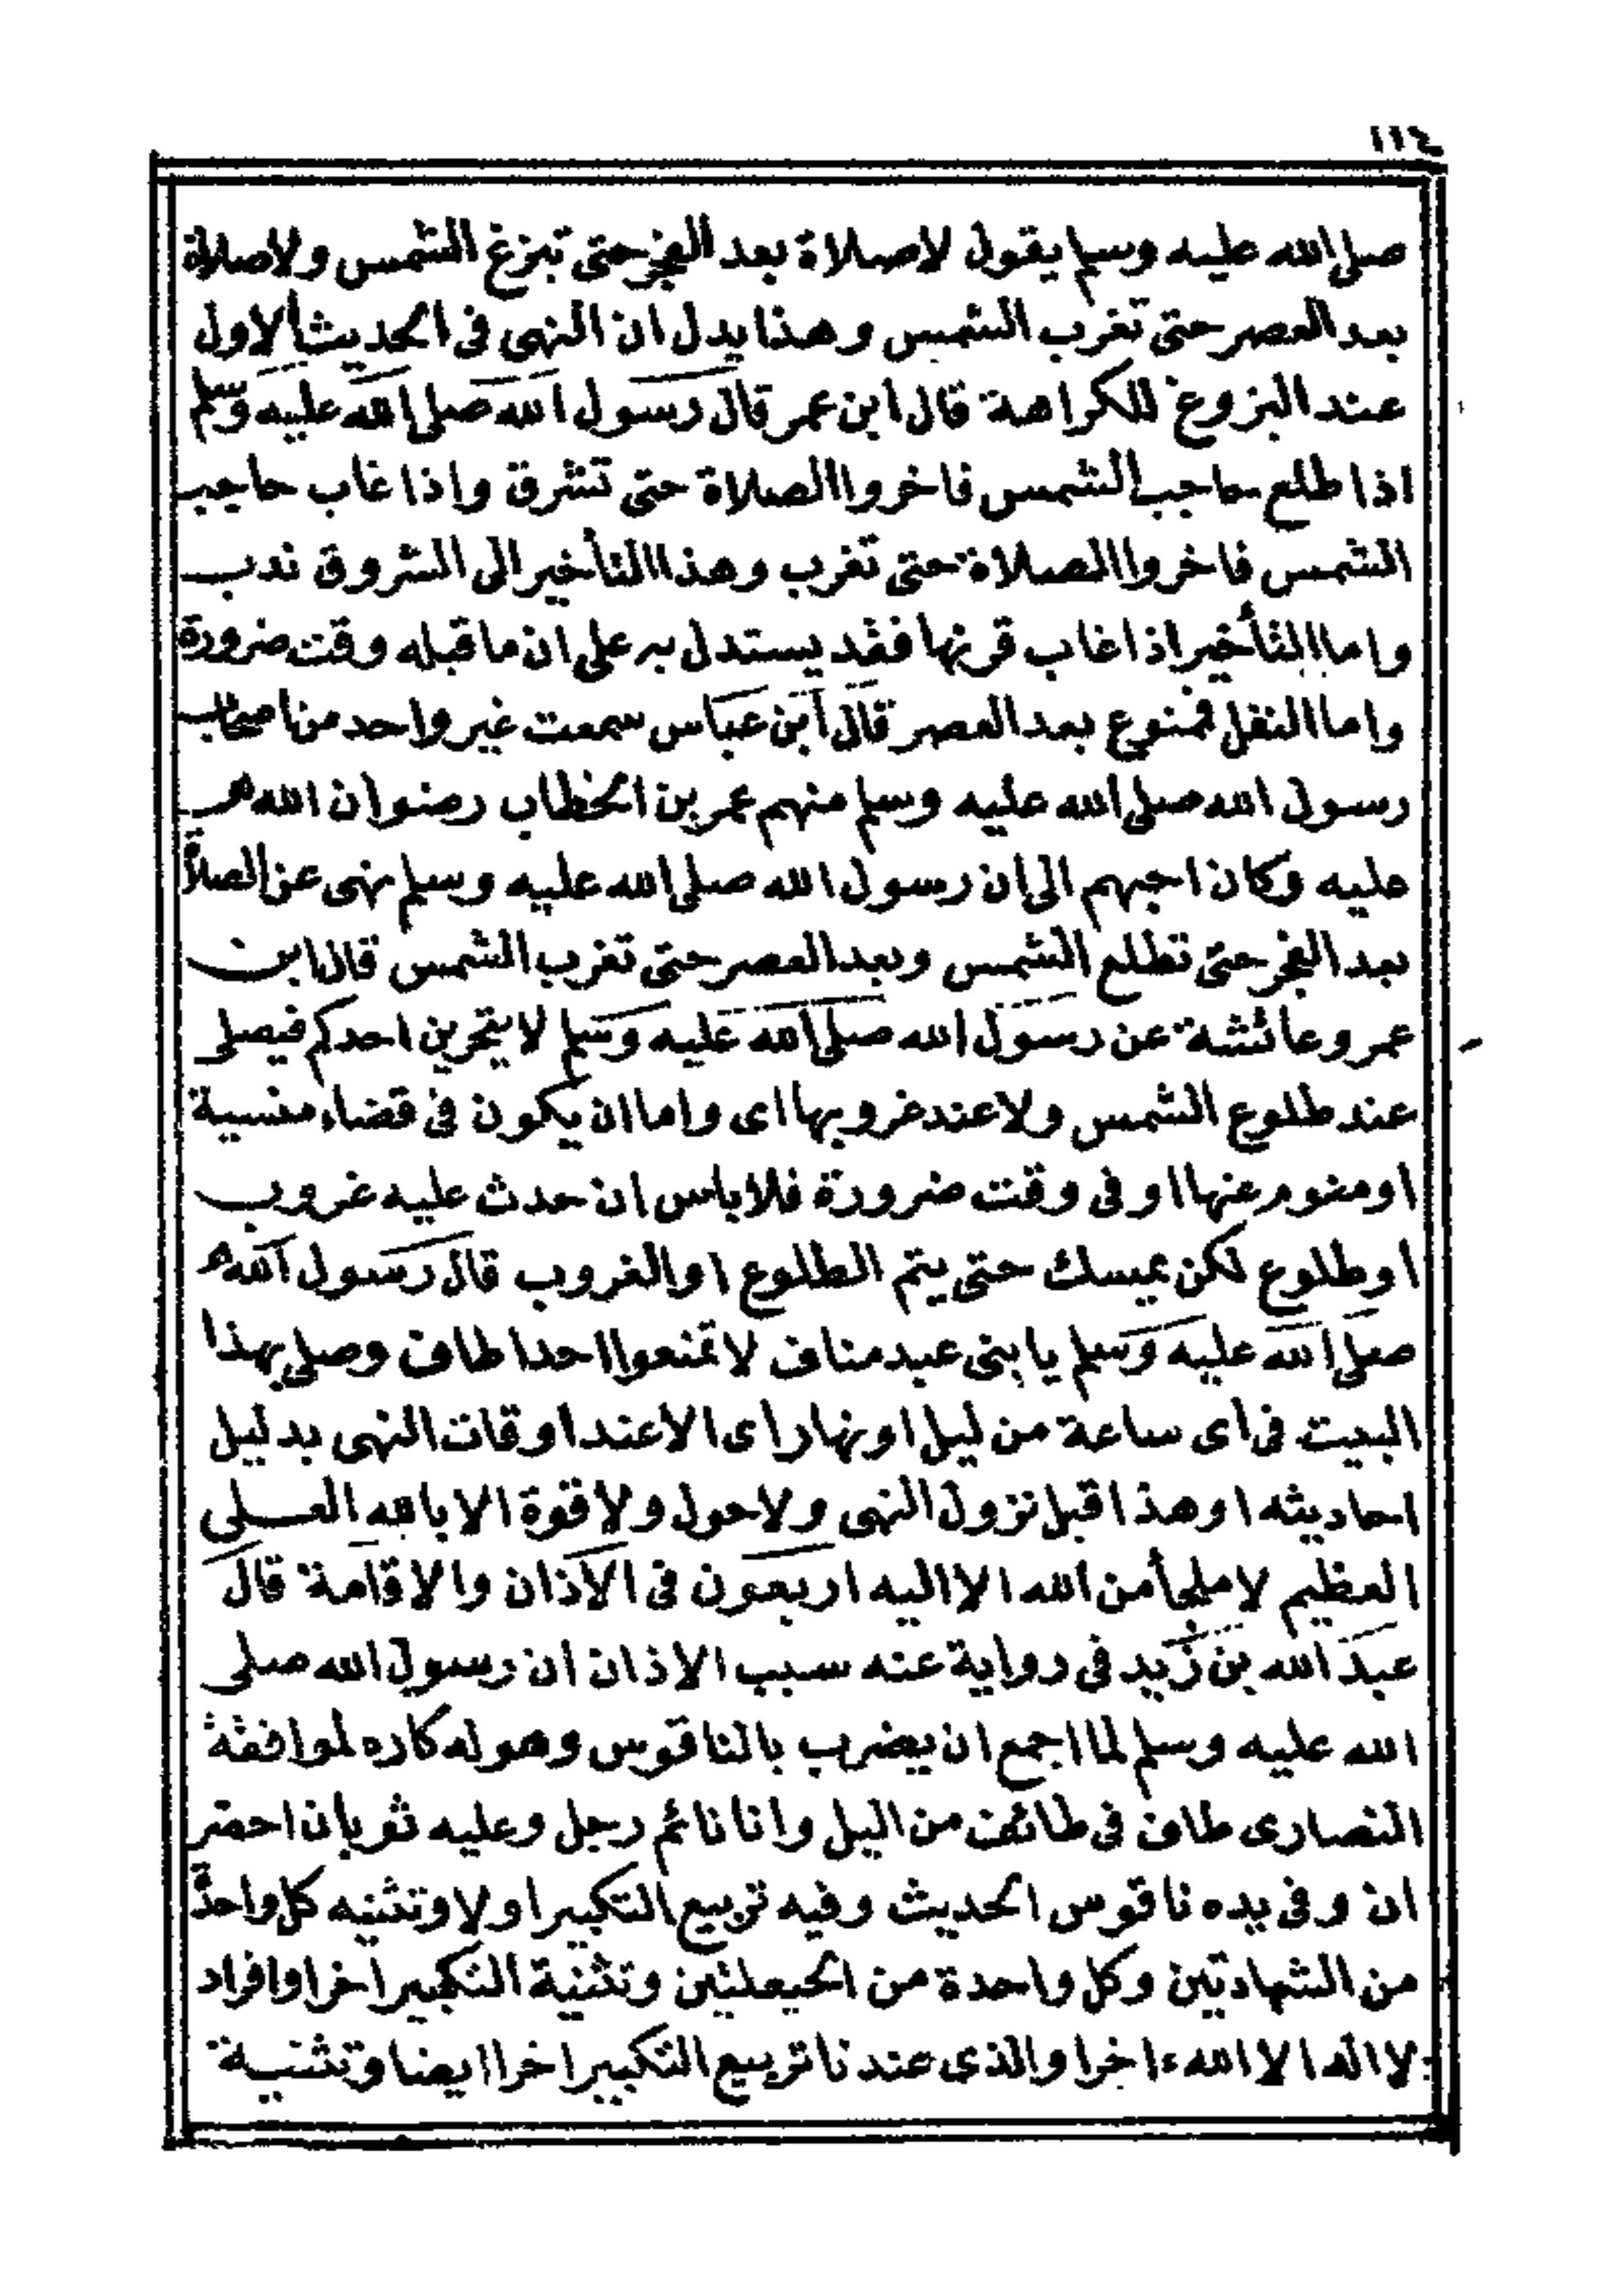 ١١٤
صلى الله عليه وسلم يقول لاصلاة بعد الفجر حتى تبزغ الشمس ولاصلاة
بعد العصر حتى تغرب الشمس وهذا يدل ان النهى فى الحديث الاول
عند البزوغ للكراهة قال ابن عمر قال رسول الله صلى الله عليه وسلم
اذا طلع حاجب الشمس فاخروا الصلاة حتى تشرق واذا غاب حاجب
الشمس فاخروا الصلاة حتى تغرب وهذا التأخير الى الشروق ندب
واما التأخير اذا غاب قرنها فقد يستدل به على ان ما قبله وقت ضرورة
واما النفل فممنوع بعد العصر قال ابن عباس سمعت غير واحد من اصحاب
رسول الله صلى الله عليه وسلم منهم عمر بن الخطاب رضوان الله
عليه وكان احبهم الى ان رسول الله صلى الله عليه وسلم نهى عن الصلاة
بعد الفجر حتى تطلع الشمس وبعد العصر حتى تغرب الشمس قال ابن
عمر وعائشة عن رسول الله صلى الله عليه وسلم لا يتحرين احدكم فيصلى
عند طلوع الشمس ولا عند غروبها اى واما ان يكون فى قضاء منسية
او منوم عنها او فى وقت ضرورة فلا باس ان حدث عليه غروب
او طلوع لكن يمسك حتى يتم الطلوع او الغروب قال رسول الله
صلى الله عليه وسلم يا بنى عبد مناف لا تمنعوا احدا طاف وصلى بهذا
البيت فى اى ساعة من ليل او نهار اى الا عند اوقات النهى بدليل
احاديثه او هذا قبل نزول النهى ولا حول ولا قوة الا بالله العلى
العظيم لا ملجأ من الله الا اليه اربعون فى الاذان والاقامة قال
عبد الله بن زيد فى رواية عنه سبب الاذان ان رسول الله صلى
الله عليه وسلم لما اجمع ان يضرب بالناقوس وهو له كاره لموافقة
النصارى طاف فى طائف من اليل وانا نائم رجل وعليه ثوبان اخضر
ان وفى يده ناقوس الحديث وفيه تربيع التكبير اولا وتثنيه كل واحدة
من الشهادتين وكل واحدة من الحيعلتين وتثنية التكبير اخرا وافراد
لا اله الا الله اخرا والذى عندنا تربيع التكبير اخرا ايضا وتثنية